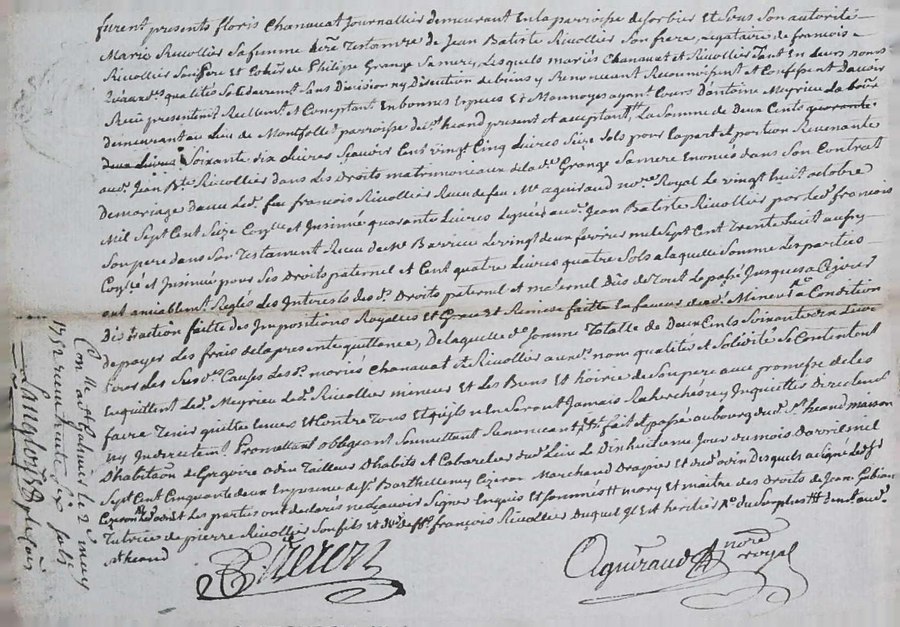 furent presents floris Chanauat Journallier demeurant En la parroisse de sorbier Et sous son autorité
Marie Riuollier sa femme Testamre de Jean Batiste Riuollier son frere legataire de françois
Riuollier son Pere et de Philipe Grange sa mere, Lesquels mariés Chanauat et Riuollier tant en leurs noms
qualités solidairent sans Division ny Discution de biens y Renonceant Reconnoissent et Confessent D'auoir
Receu presentemt Reellemt et Comptant En bonnes Especes Et Monnoyes ayant Cours d'antoine Meyrieu
demeurant au lieu de Montfollet parroisse de st heand present et acceptant La somme de Deux Cents quarante
deux liures Soixante six liures Scauoir Cent vingt Cinq liures seize sols pour la part et portion Reuenante
aud. Jean Bte Riuollier dans Les Droits matrimoniaux de la d. Grange sa mere Enoncés dans Son Contrat
de mariage D'auec led. feu françois Riuollier Receu de feu Me aguiraud nore Royal Le vingt huit octobre
Mil sept Cent seize et Insinué quarante liures Legués aud. Jean Batiste Riuollier par led. françois
son pere dans son Testament Receu de Me Barrieu Le vingt deux feurier mil sept Cent Trente huit aussy
et Insinué pour ses Droits paternel et Cent quatre Liures quatre sols a laquelle somme Les parties
ont amiablemt Reglé Les Interests des d. Droits paternel et maternel Dûs de tout le passé Jusques a Ce jour
Distraction faitte des Impositions Royalles Et Grace et Remise faitte En faueur dud. Mineur a Condition
de payer Les frais de la presente quittance, De laquelle d. somme Totalle de Deux Cents soixante six liures
pour Les susd. Causes Les d. mariés Chanauat et Riuollier aux d. nom qualités et solidité se Contentent
En quittent Led. Meyrieu Led. Riuollier mineur et Les Biens Et hoirie de son pere auec promesse de les
faire Tenir quittes Enuers Et Contre Tous Et qu'ils n'en seront Jamais Recherchés ny Inquiettés Directemt
ny Indirectemt Promettant obligeant soumettant Renonceant fait et passé au bourg dud. st heand maison
D'habitaon de Gregoire odin Tailleur D'habits et Cabaretier dud. Lieu Le Dixhuitieme Jour du mois D'avril mil
sept Cent Cinquante deux En presence de sr Barthellemy Cozeron Marchand Drapier Et dud. odin Desquels a signé Led. sr
Cozeron Et les parties ont declaré ne scauoir signer Enquis Et sommés mary et maitre des Droits de Jeane
Tutrice de pierre Riuollier son fils et de françois Riuollier Duquel Il Est heritier du surplus
st heand
Cozeron
Aguiraud nore royal
le 2 may
1752 receu sols